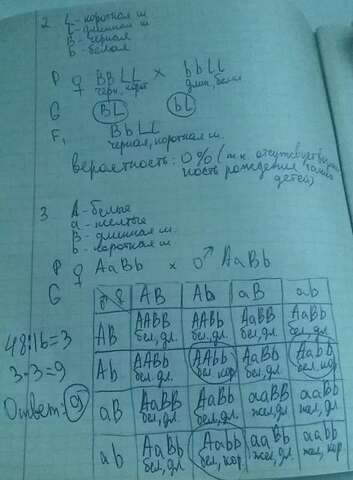 2. L - короткая ш.
l - длинная ш.
B - черная
b - белая
P ♀ BBLL × bbll
черн, корот длин, белая
G BL bl
F₁ BbLl
черная, короткая ш.
вероятность: 0% (т.к. отсутствует
ность рождения таких
детей)
3. A - белые
a - желтые
B - длинная ш.
b - короткая ш
P ♀ AaBb × ♂ AaBb
G ♂ ♀ AB Ab aB ab
AB AABB AABb AaBB AaBb
бел, дл. бел, дл. бел, дл. бел, дл.
48:16=3
Ab AABb AAbb AaBb Aabb
бел, дл. бел, кор бел, дл. бел, кор
3·3=9
aB AaBB AaBb aaBB aaBb
бел, дл. бел, дл. жел, дл. жел, дл.
Ответ: 9
ab AaBb Aabb aaBb aabb
бел, дл бел, кор жел, дл. жел, кор